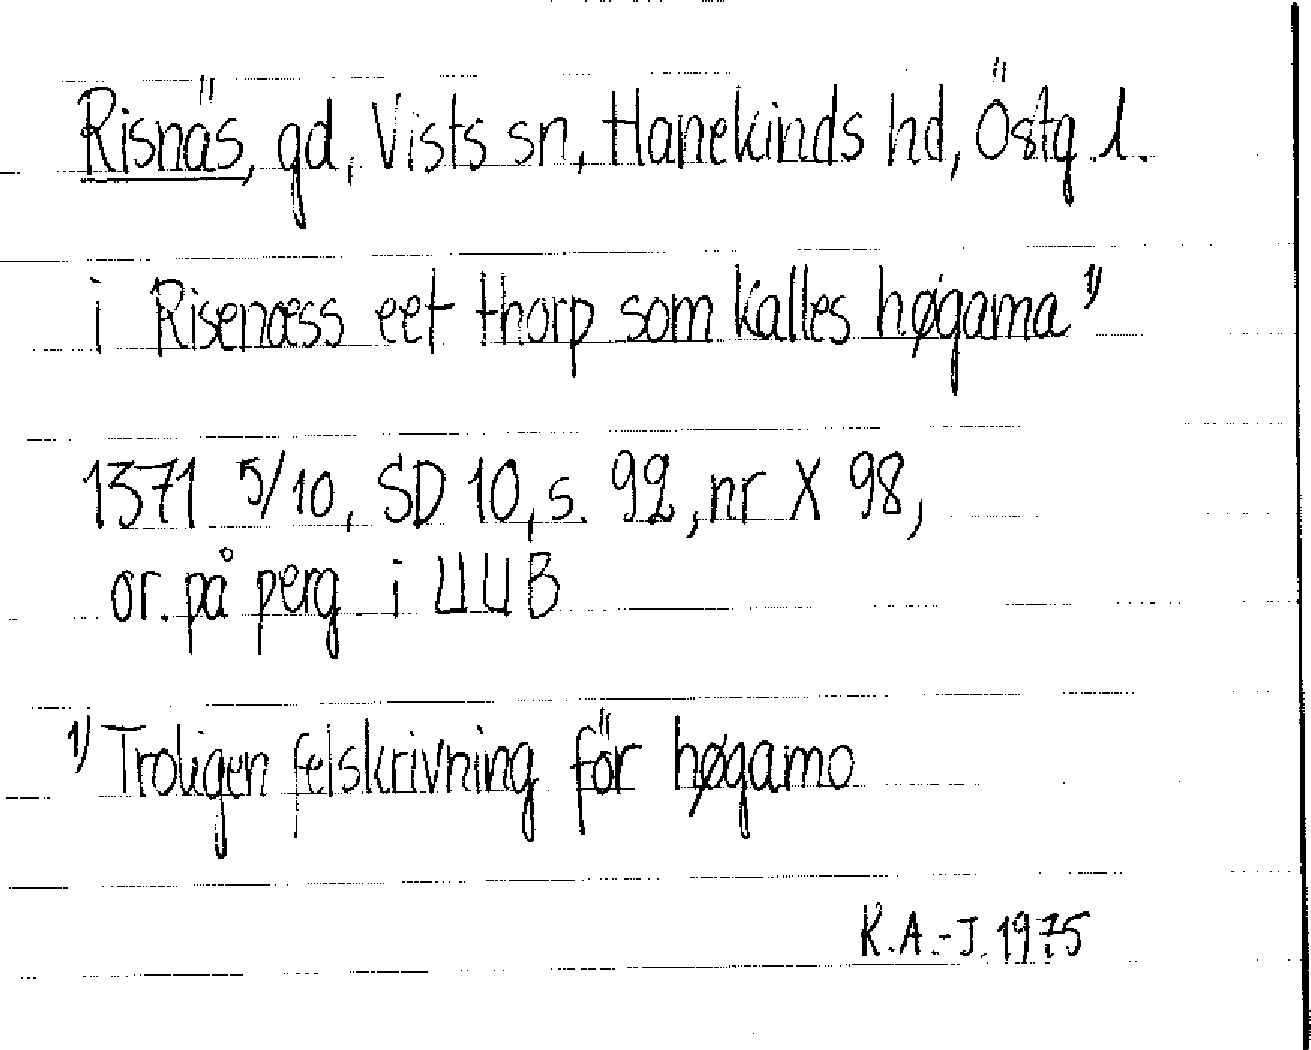 Risnäs, gd, Vists sn, Hanekinds hd, Östg.l.
i Risenæss eet thorp som kalles høgama 1)
1371 5/10, SD 10, s. 92, nr X 98,
or. på perg i UUB
1) Troligen felskrivning för høgamo
K.A.-J. 1975